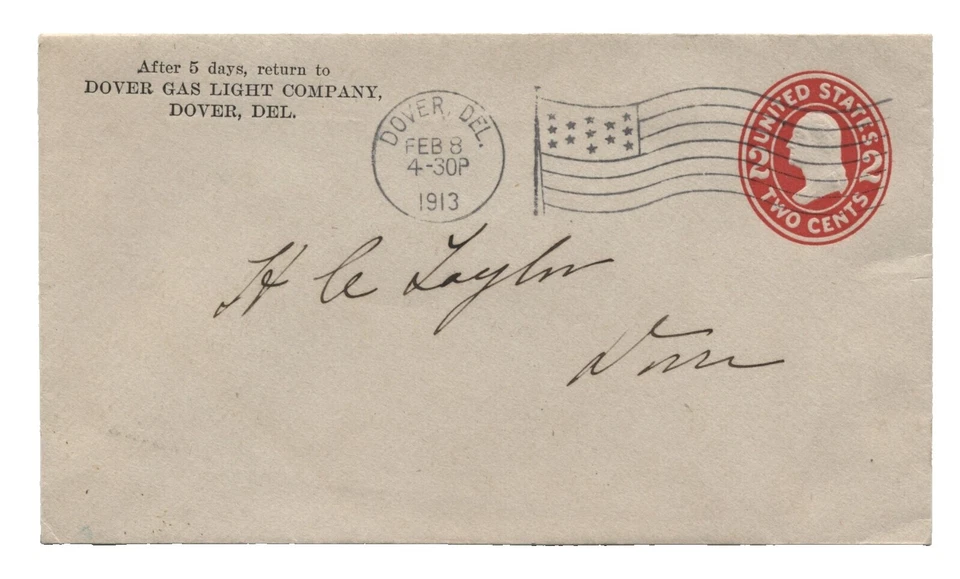 After 5 days, return to
DOVER GAS LIGHT COMPANY,
DOVER, DEL.
DOVER, DEL.
FEB 8
4-30P
1913
UNITED STATES
2 2
TWO CENTS
H C Taylor
Dover